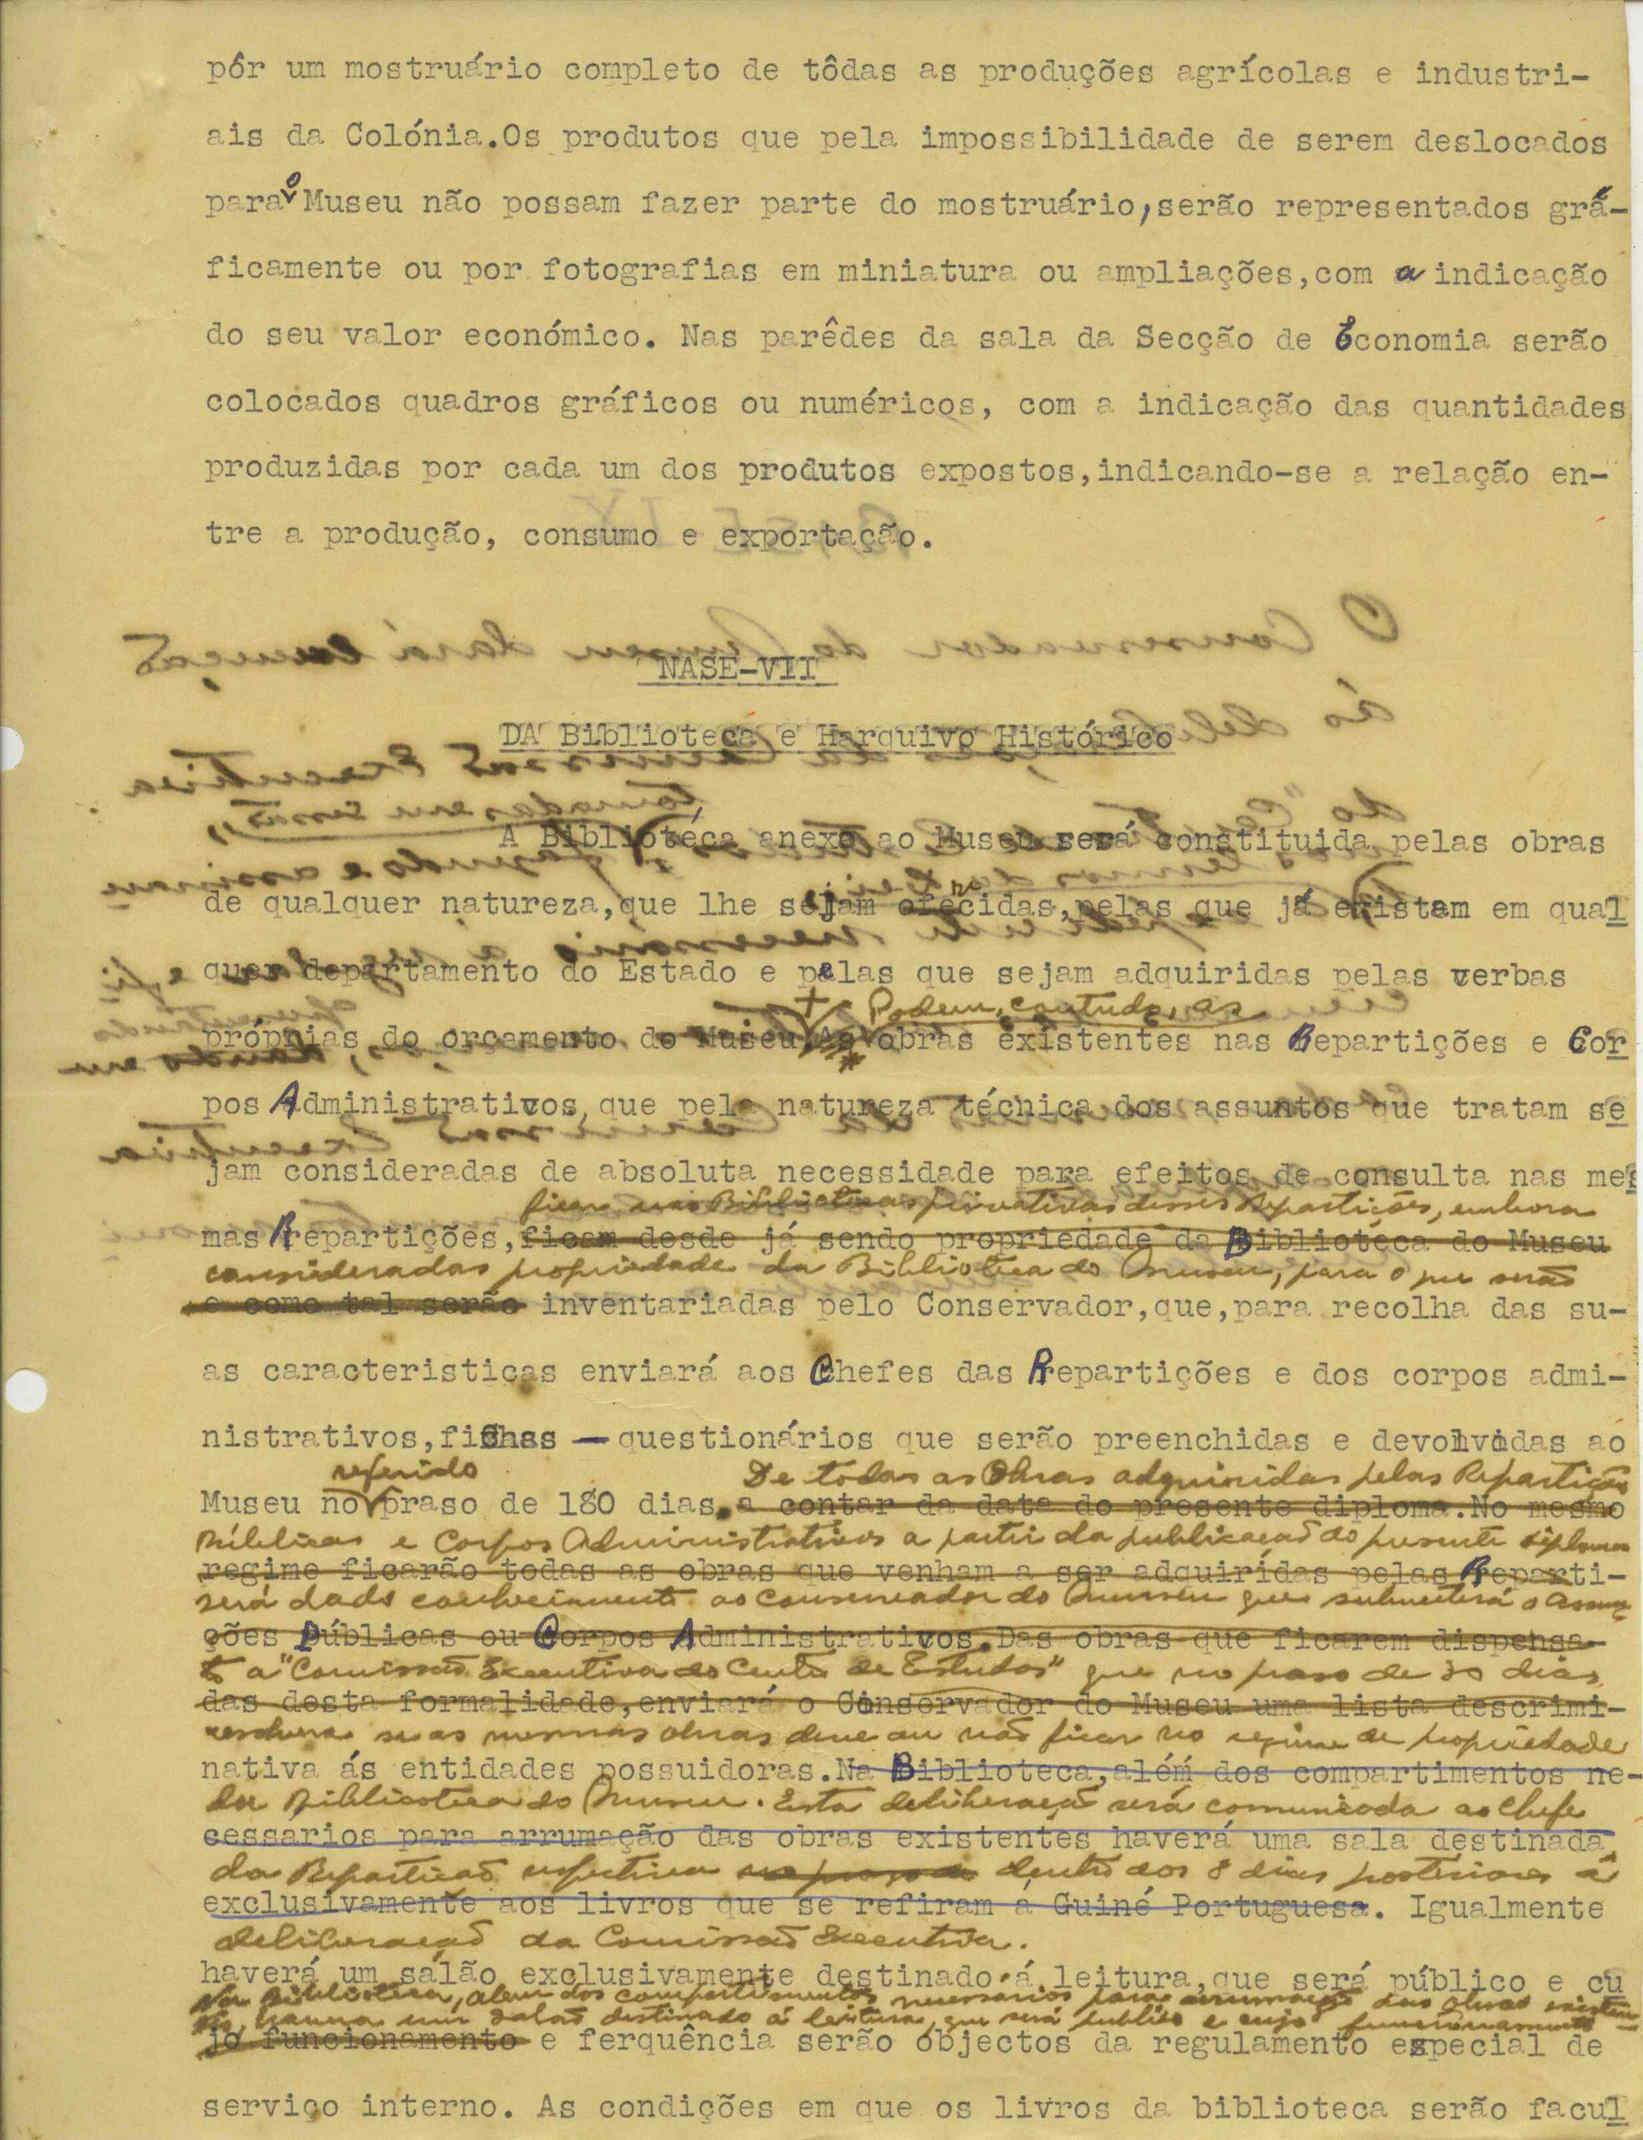 pôr um mostruário completo de tôdas as produções agrícolas e industri-
ais da Colónia.Os produtos que pela impossibilidade de serem deslocados
para o Museu não possam fazer parte do mostruário,serão representados grá-
ficamente ou por fotografias em miniatura ou ampliações,com a indicação
do seu valor económico. Nas parêdes da sala da Secção de Economia serão
colocados quadros gráficos ou numéricos, com a indicação das quantidades
produzidas por cada um dos produtos expostos,indicando-se a relação en-
tre a produção, consumo e exportação.
NASE-VII
DA Biblioteca e Harquivo Histórico
A Bibliotéca anexo ao Museu será constituida pelas obras
de qualquer natureza,que lhe sejam ofecidas,pelas que já existam em qual
quer departamento do Estado e pelas que sejam adquiridas pelas verbas
Podem, contudo, as
próprias do orçamento do Museu As obras existentes nas Repartições e Cor
pos Administrativos,que pela natureza técnica dos assuntos que tratam se
jam consideradas de absoluta necessidade para efeitos de consulta nas mes
ficar nas Bibliotecas privativas desses Repartições, embora
mas Repartições,ficam desde já sendo propriedade da Bibliotéca do Museu
consideradas propriedade da Biblioteca do Museu, para o que serão
e como tal serão inventariadas pelo Conservador,que,para recolha das su-
as caracteristicas enviará aos Chefes das Repartições e dos corpos admi-
nistrativos,fichas — questionários que serão preenchidas e devolvidas ao
referido De todas as Obras adquiridas pelas Repartições
Museu no praso de 180 dias.a contar da data do presente diploma.No mesmo
Públicas e Corpos Administrativos a partir da publicação do presente diploma
regime ficarão todas as obras que venham a ser adquirídas pelas Reparti-
será dado conhecimento ao Conservador do Museu que submeterá o assun-
ções Públicas ou Corpos Administrativos.Das obras que ficarem dispensa-
to a "Comissão Executiva do Centro de Estudos" que no praso de 30 dias
das desta formalidade,enviará o Conservador do Museu uma lista descrimi-
resolverá se as mesmas obras deve ou não ficar no regime de propriedade
nativa ás entidades possuidoras.Na Biblioteca,além dos compartimentos ne-
da Biblioteca do Museu. Esta deliberação será comunicada ao Chefe
cessarios para arrumação das obras existentes haverá uma sala destinada
da Repartição respectiva no praso de dentro dos 8 dias posteriores á
exclusivamente aos livros que se refiram á Guiné Portuguesa. Igualmente
deliberação da Comissão Executiva.
haverá um sálão exclusivamente destinado á leitura,que será público e cu
Na Biblioteca, alem dos compartimentos necessarios para arrumação das obras existen-
tes, haverá um salão destinado á leitura, que será publico e cujo funcionamento
jo funcionamento e ferquência serão objectos da regulamento especial de
serviço interno. As condições em que os livros da biblioteca serão facul